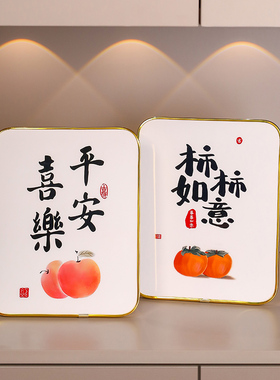 平安
喜樂
柿柿
如意